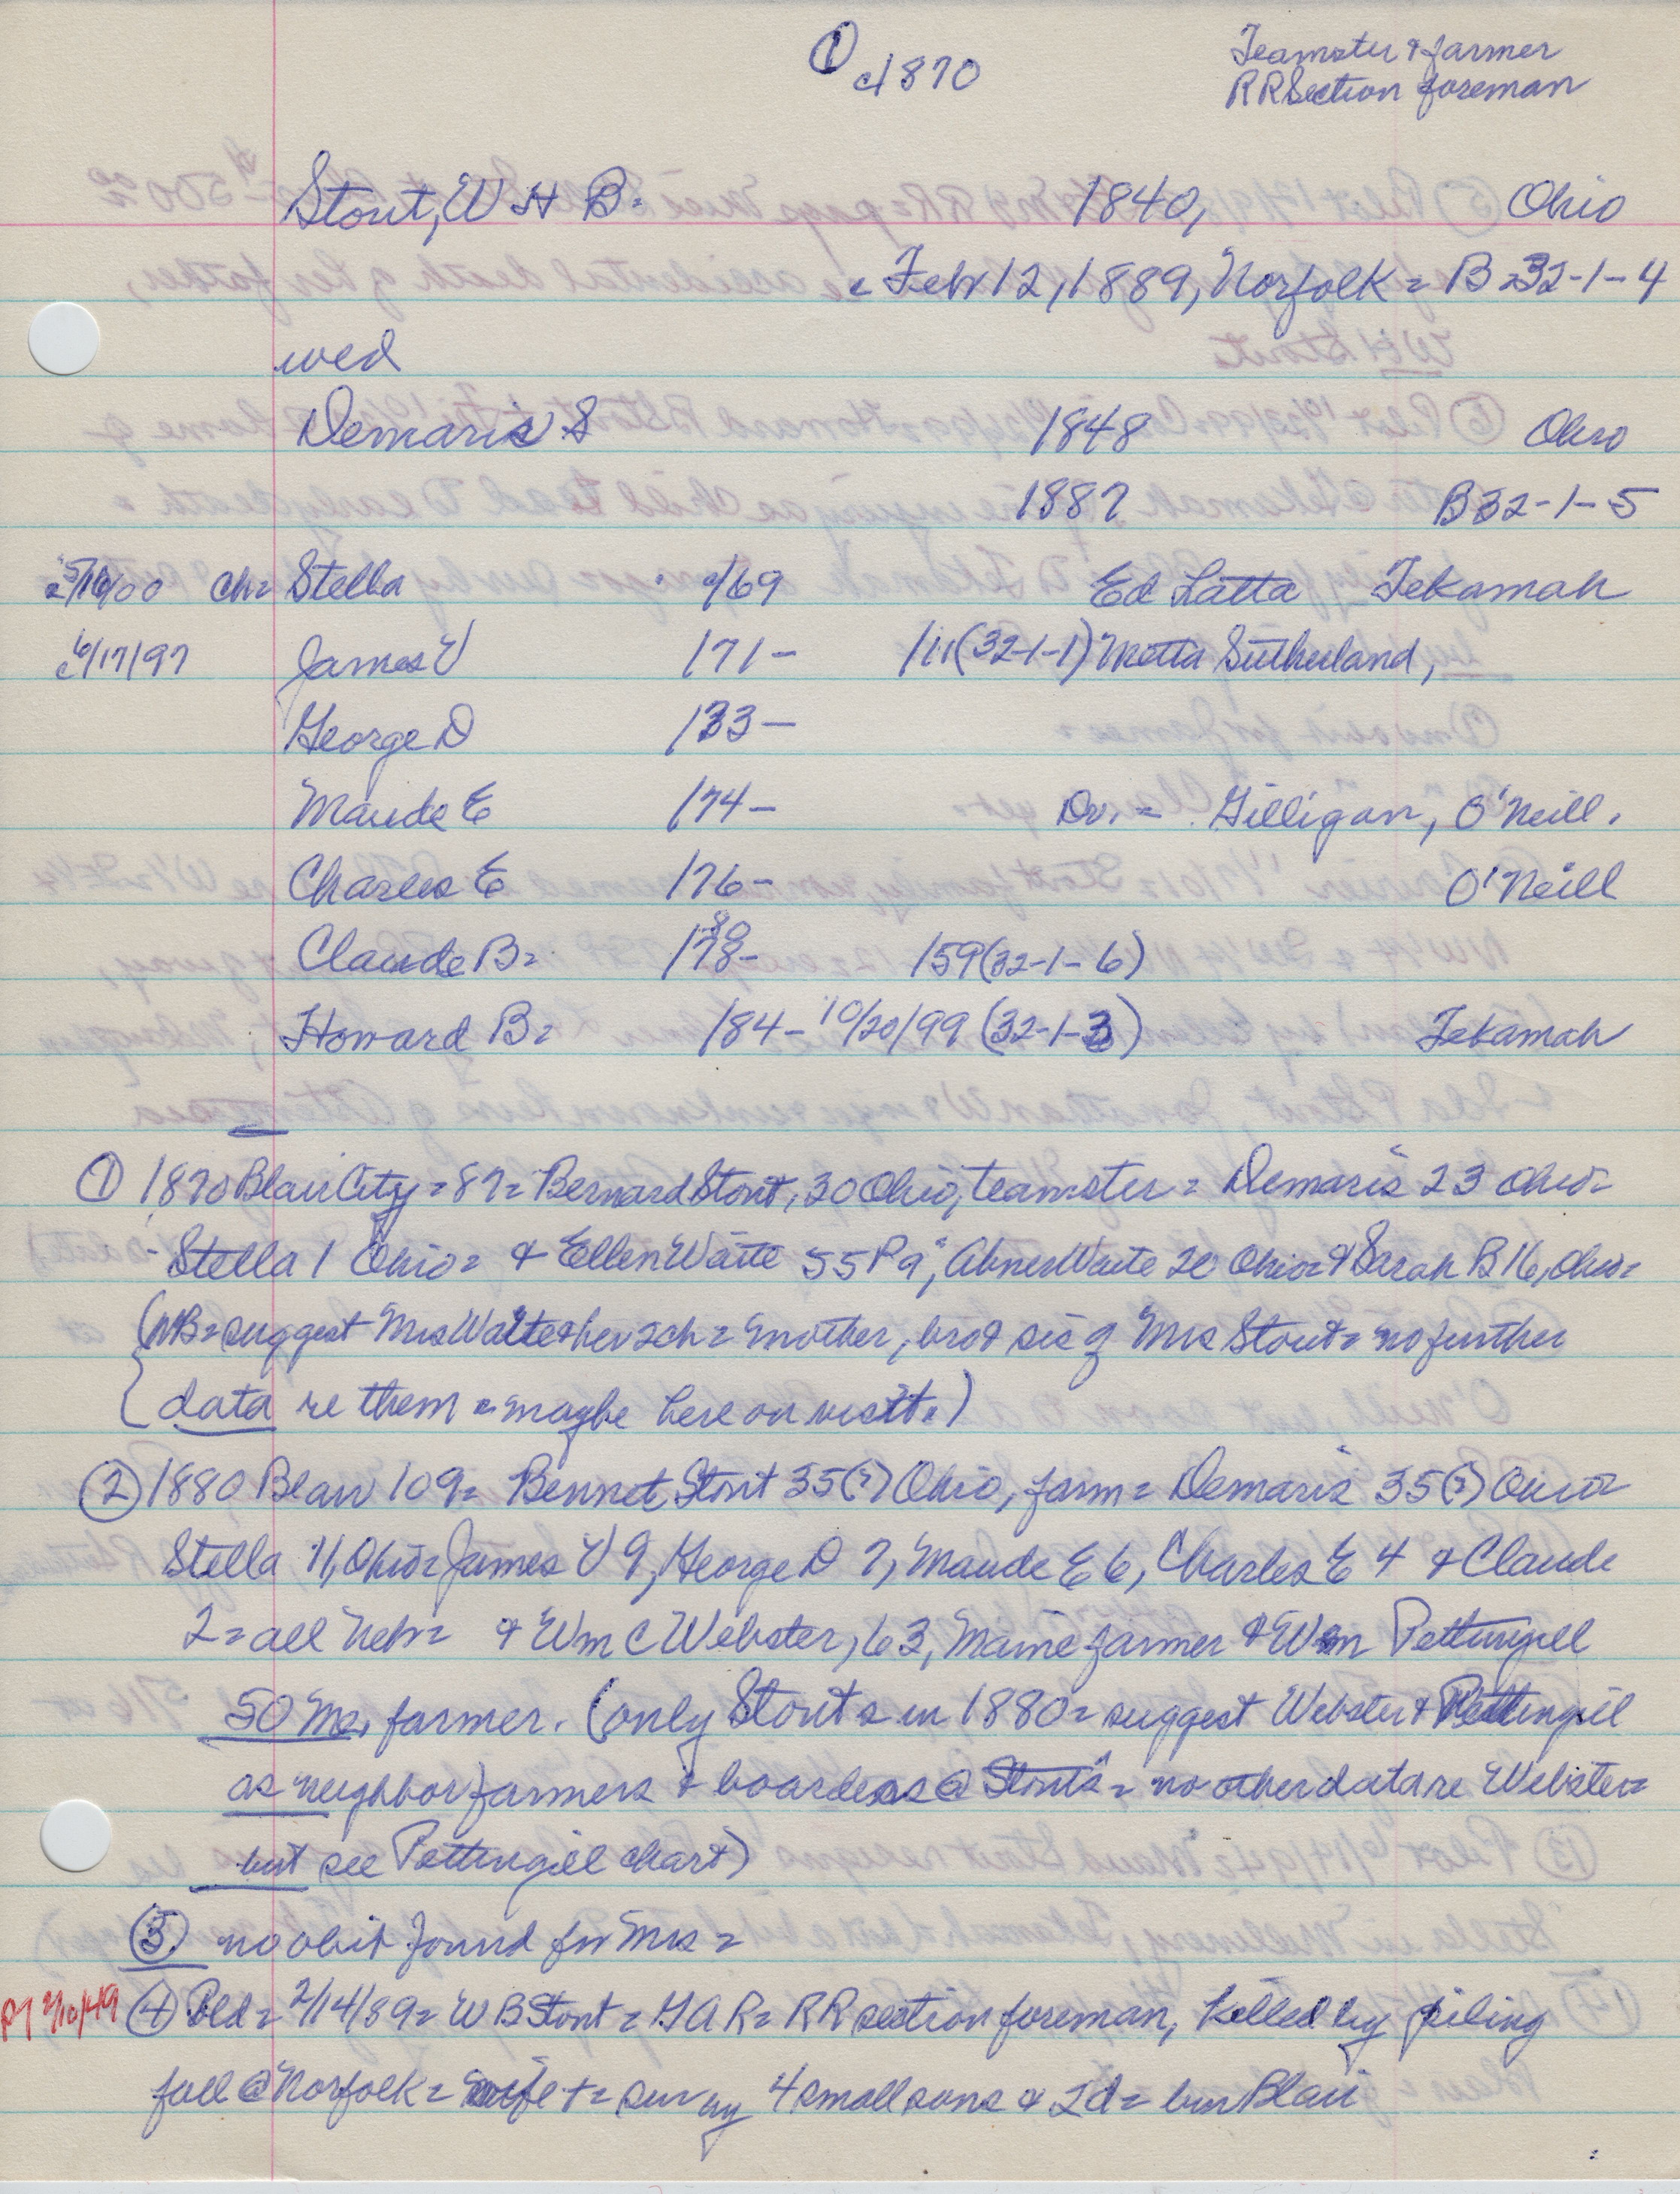 ① c/1870
Teamster & farmer
RR Section foreman
Stout, W H B= 1840, Ohio
c Feb 12, 1889, Norfolk = B=32-1-4
wed
Demaris S 1848 Ohio
1887 B32-1-5
ch= Stella c/69 Ed Latta Tekamah
c6/17/97 James V 171- /11(32-1-1) Metta Sutherland,
George D 173-
Maude E 174- Dr. = Gilligan, O'Neill.
Charles E 176- O'Neill
Claude B= 178- 80 159(32-1-6)
Howard B= 184- 10/20/99 (32-1-3) Tekamah
① 1870 Blair City = 87= Bernard Stout, 30 Ohio, teamster = Demaris 23 Ohio=
- Stella 1 Ohio= & Ellen Waite 55 Pa, Abner Waite 20 Ohio= & Sarah B 16, Ohio=
(NB= suggest Mrs Waite & her 2ch= mother, bro & sis of Mrs Stout= no further
data re them = maybe here on visit.)
② 1880 Blair 109= Bennet Stout 35(?) Ohio, farm= Demaris 35(?) Ohio=
Stella 11, Ohio= James V 9, George D 7, Maude E 6, Charles E 4 & Claude
2= all Neb= & Wm C Webster, 63, Maine farmer & Wm Pettengill
50 Me, farmer. (only Stouts in 1880= suggest Webster & Pettengill
as neighbor farmers & boarders @ Stouts = no other data re Webster=
but see Pettengill chart)
③ no obit found for Mrs =
P7 2/10/49 ④ Pld= 2/14/89= W B Stout = GAR= RR section foreman, killed by piling
fall @ Norfolk = wife += sur by 4 small sons & 2d= bur Blair